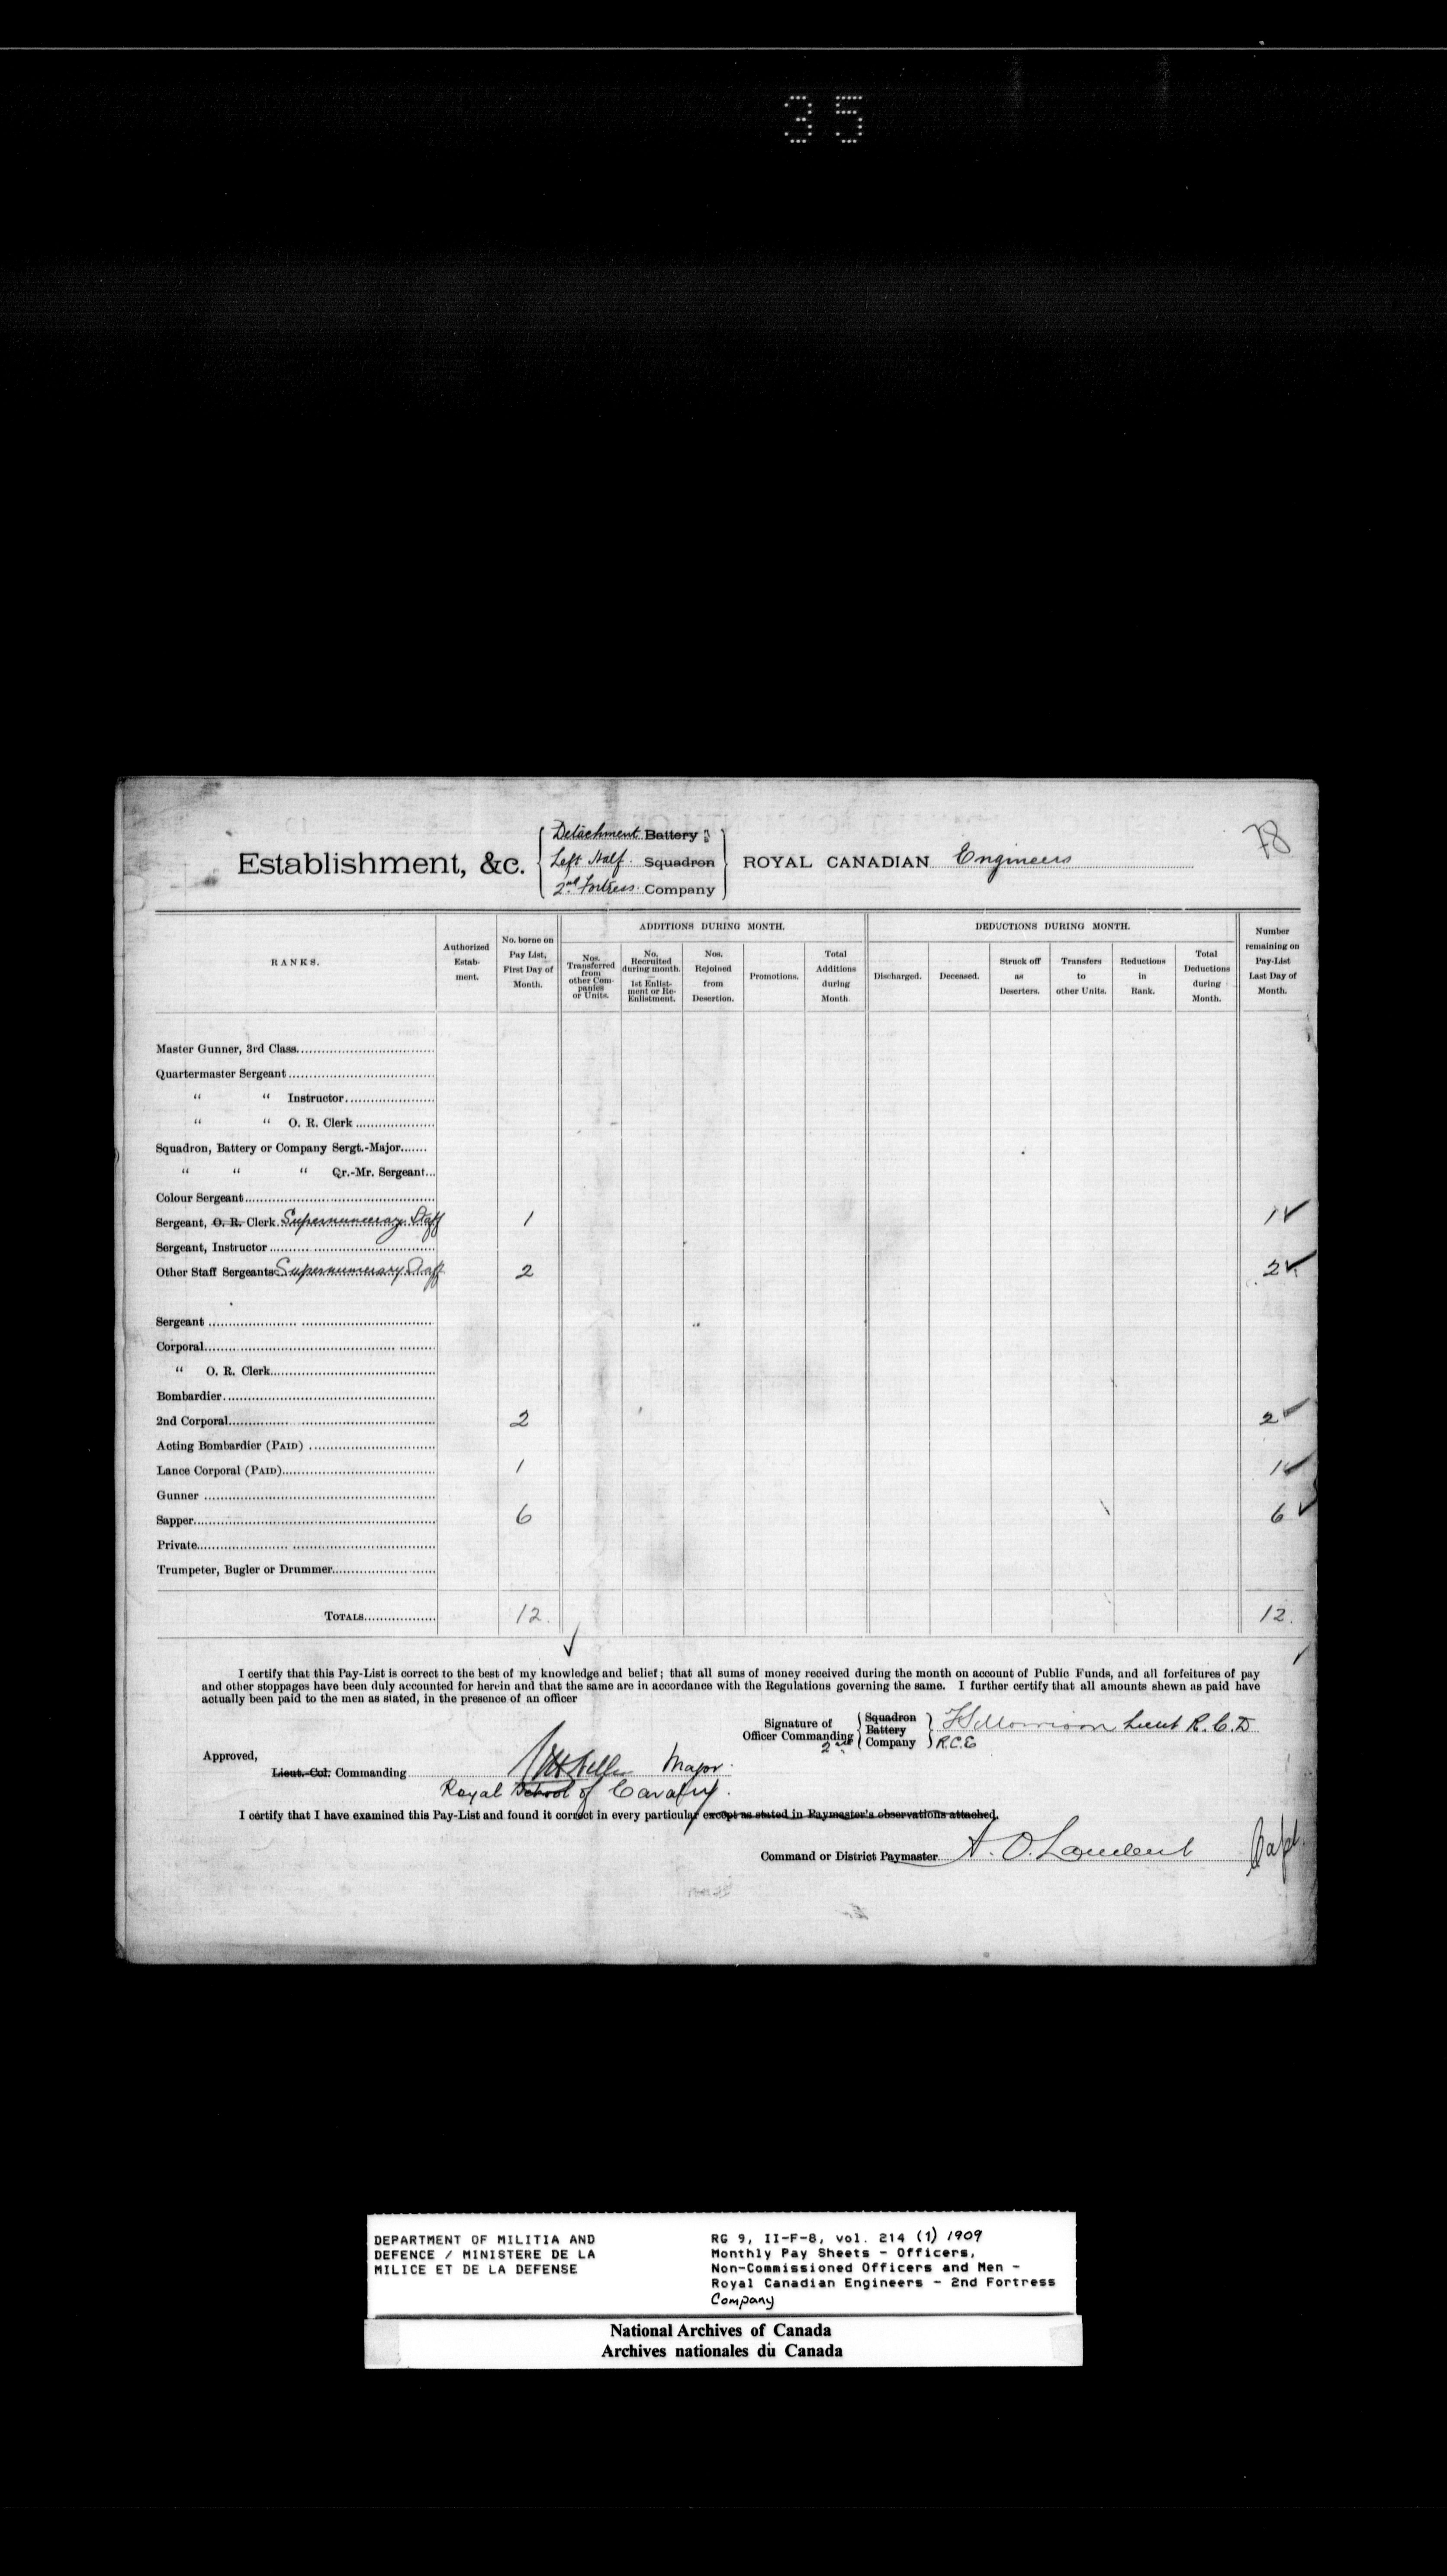 35
78
Detachment Battery
Establishment, &c. Left Half Squadron ROYAL CANADIAN Engineers
2nd Fortress Company
RANKS.
Authorized Estab- ment.
No. borne on Pay List, First Day of Month.
ADDITIONS DURING MONTH.
Nos. Transferred from other Com- panies or Units.
No. Recruited during month. — 1st Enlist- ment or Re- Enlistment.
Nos. Rejoined from Desertion.
Promotions.
Total Additions during Month
DEDUCTIONS DURING MONTH.
Discharged.
Deceased.
Struck off as Deserters.
Transfers to other Units.
Reductions in Rank.
Total Deductions during Month.
Number remaining on Pay-List Last Day of Month.
Master Gunner, 3rd Class
Quartermaster Sergeant
“ “ Instructor
“ “ O. R. Clerk
Squadron, Battery or Company Sergt.-Major
“ “ “ Qr.-Mr. Sergeant
Colour Sergeant
Sergeant, O. R. Clerk Supernumerary Staff 1 1
Sergeant, Instructor
Other Staff Sergeants Supernumerary Staff 2 2
Sergeant
Corporal
“ O. R. Clerk
Bombardier
2nd Corporal 2 2
Acting Bombardier (PAID)
Lance Corporal (PAID) 1 1
Gunner
Sapper 6 6
Private
Trumpeter, Bugler or Drummer
TOTALS 12 12
I certify that this Pay-List is correct to the best of my knowledge and belief; that all sums of money received during the month on account of Public Funds, and all forfeitures of pay
and other stoppages have been duly accounted for herein and that the same are in accordance with the Regulations governing the same. I further certify that all amounts shewn as paid have
actually been paid to the men as stated, in the presence of an officer
Signature of Officer Commanding Squadron Battery 2nd Company Morrison Lieut R.C.D
R.C.E
Approved,
Lieut.-Col. Commanding Major
Royal School of Cavalry.
I certify that I have examined this Pay-List and found it correct in every particular except as stated in Paymaster's observations attached.
Command or District Paymaster A. O. Lambert Capt.
DEPARTMENT OF MILITIA AND
DEFENCE / MINISTERE DE LA
MILICE ET DE LA DEFENSE
RG 9, II-F-8, vol. 214 (1) 1909
Monthly Pay Sheets - Officers,
Non-Commissioned Officers and Men -
Royal Canadian Engineers - 2nd Fortress
Company
National Archives of Canada
Archives nationales du Canada